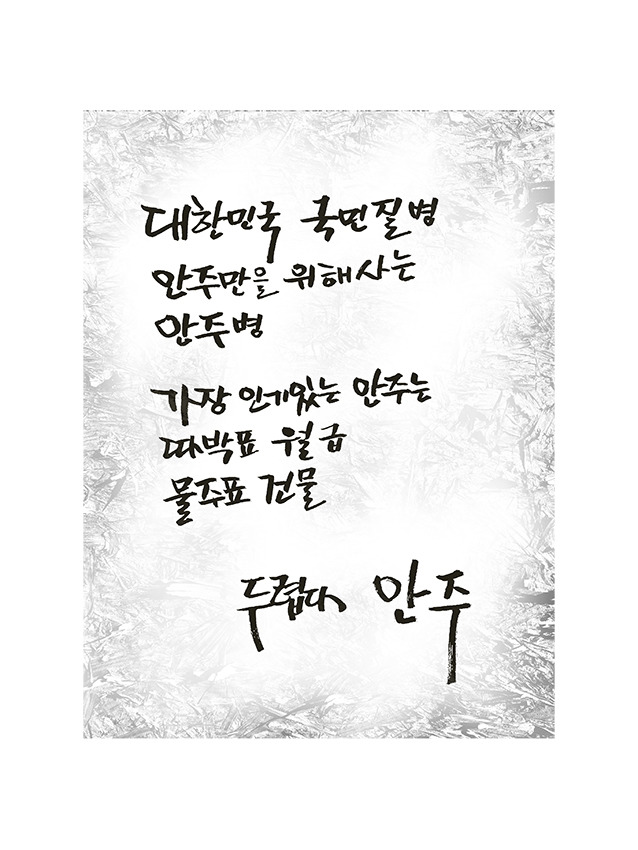 대한민국 국민질병
안주만을 위해사는
안주병
가장 인기있는 안주는
따박표 월급
물주표 건물
두렵다 안주